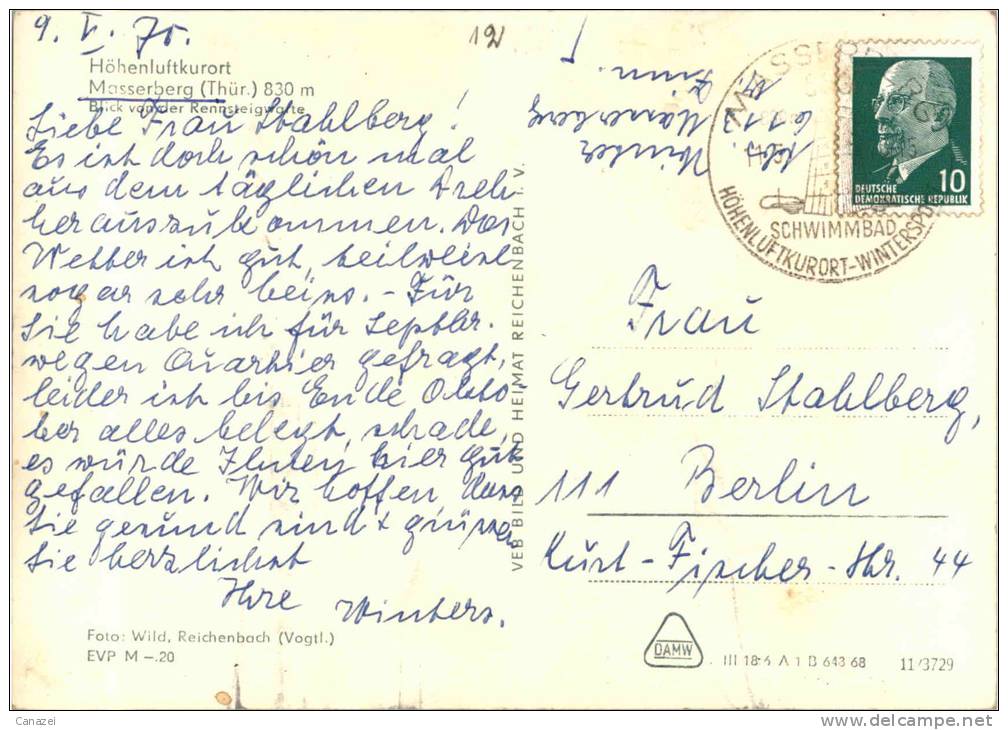 9. V. 70.
12
Höhenluftkurort
Masserberg (Thür.) 830 m
Blick von der Rennsteigwarte
Liebe Frau Stahlberg!
Es ist doch schön mal
aus dem täglichen Dreh
herauszukommen. Das
Wetter ist gut, teilweise
sogar sehr heiss. - Für
Sie habe ich für Septbr.
wegen Quartier gefragt,
leider ist bis Ende Okto
ber alles belegt, schade,
es würde Ihnen hier gut
gefallen. Wir hoffen dass
Sie gesund sind + grüssen
Sie herzlichst
Ihre Winters.
Foto: Wild, Reichenbach (Vogtl.)
EVP M -.20
VEB BILD UND HEIMAT REICHENBACH i. V.
Abs. Winter
6113 Masserberg
Zimm. 1
MASSERBERG
SCHWIMMBAD
HÖHENLUFTKURORT-WINTERSPO
DEUTSCHE
DEMOKRATISCHE REPUBLIK
10
Frau
Gertrud Stahlberg,
111 Berlin
Kurt-Fischer-Str. 44
DAMW
III 18-6 A 1 B 643 68 11/3729
Canazei
www.delcampe.net